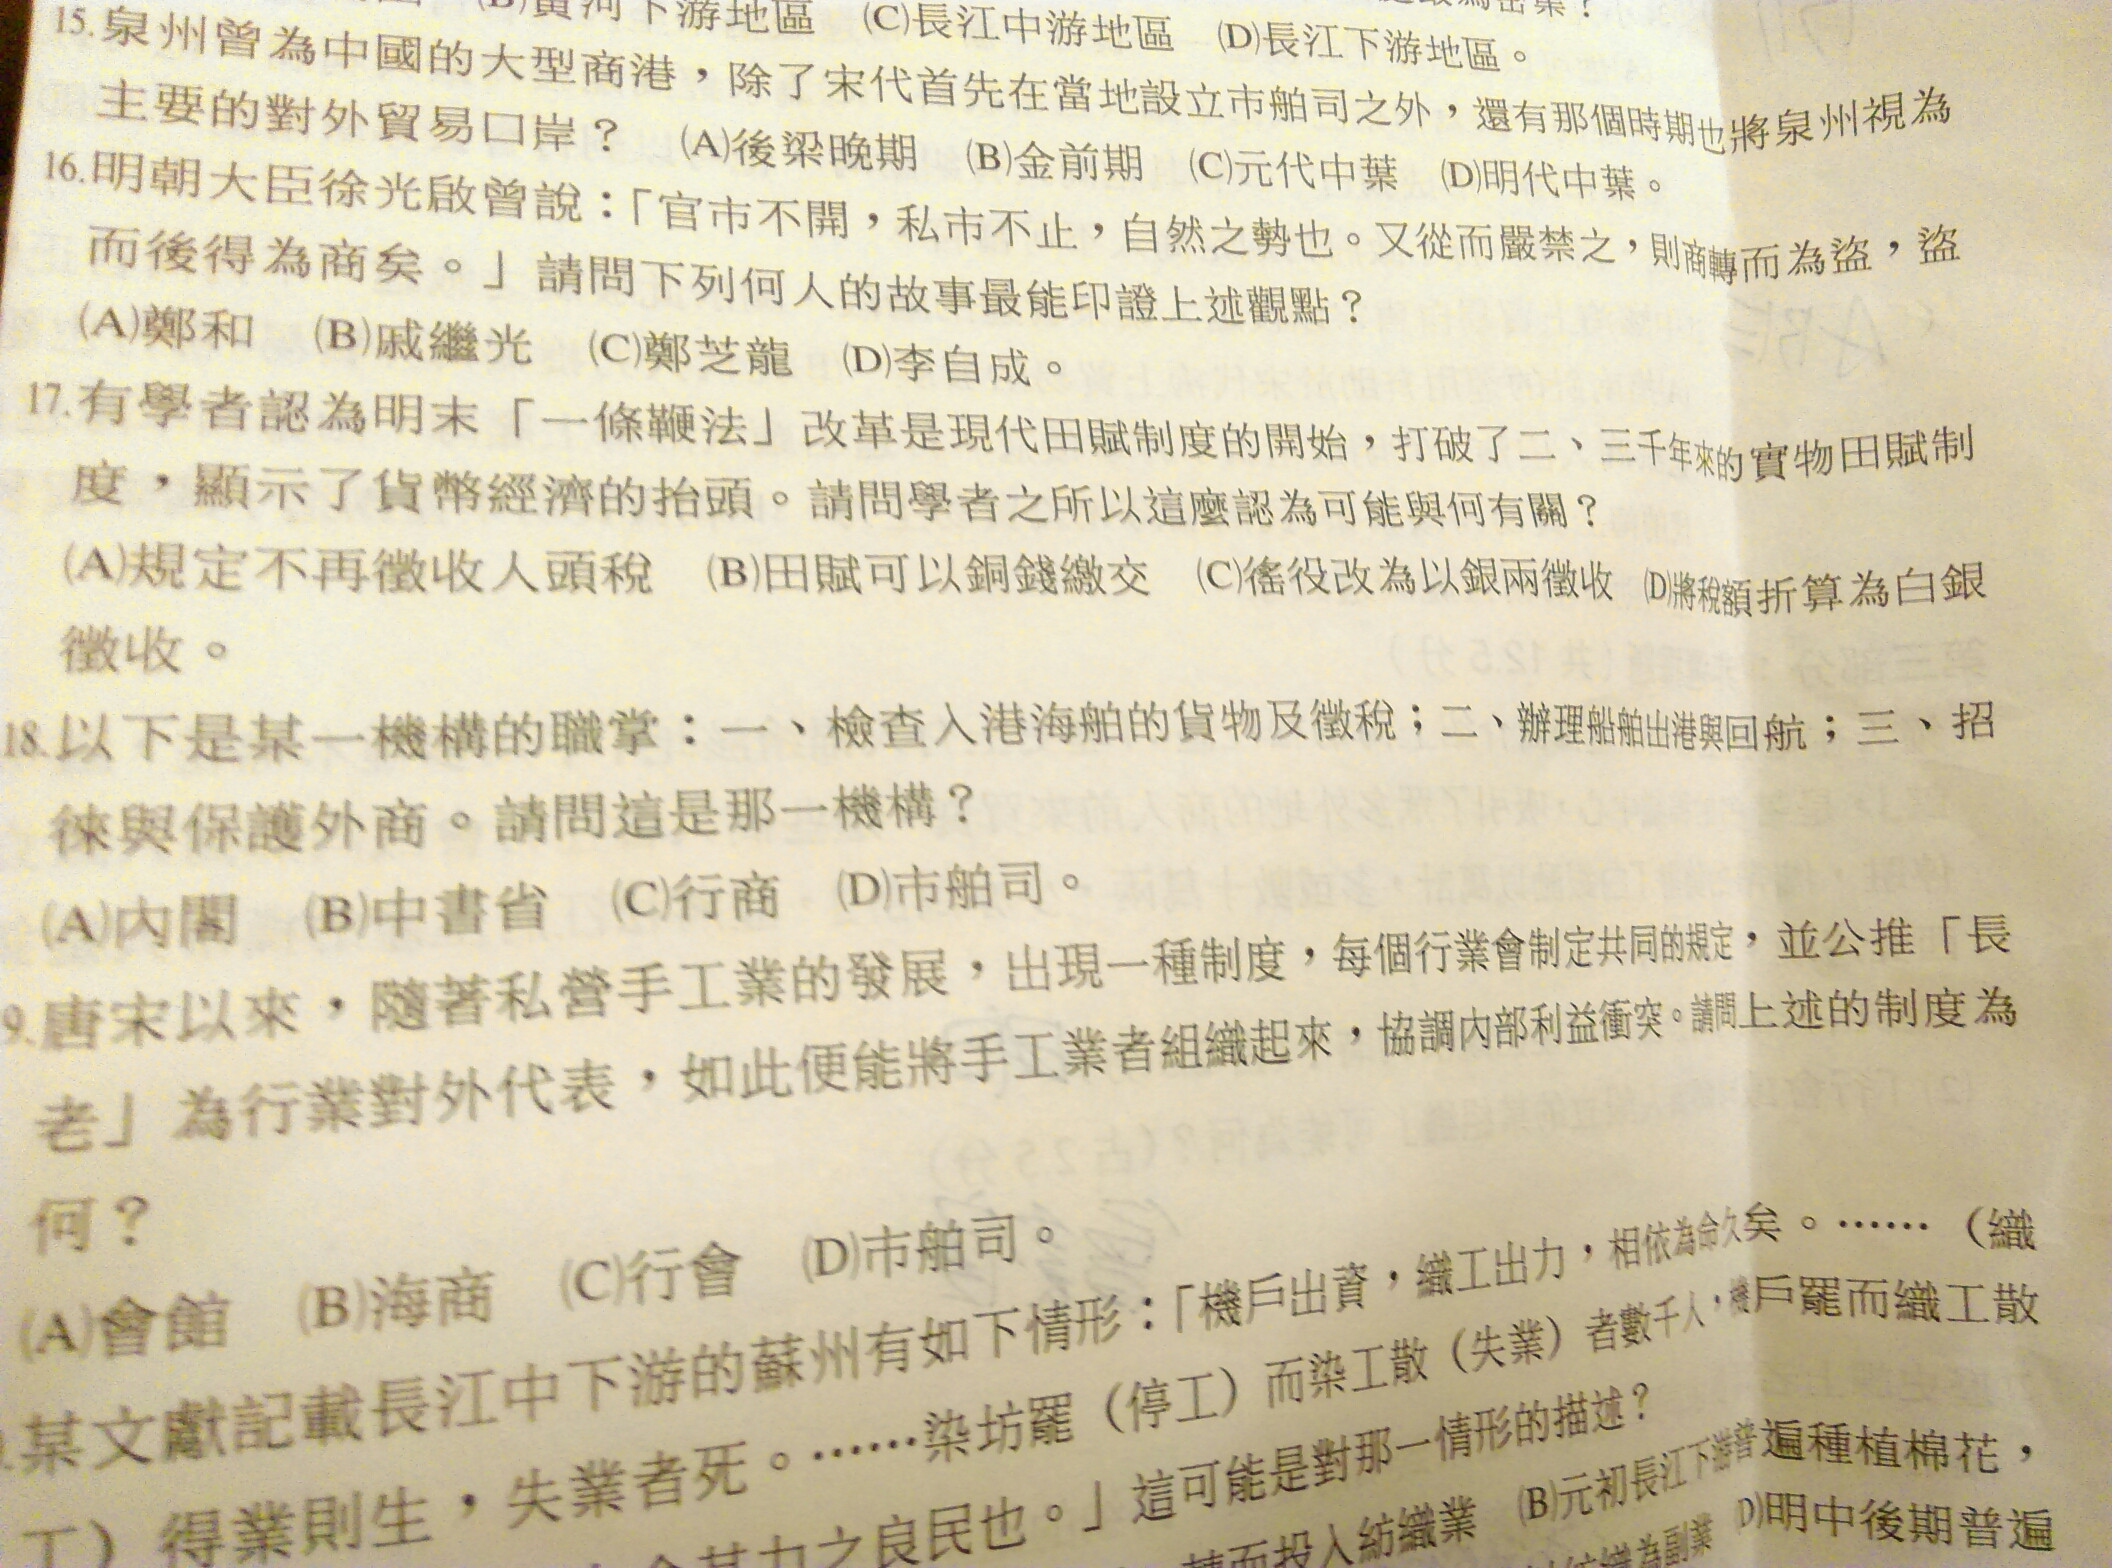 (B)黃河下游地區　(C)長江中游地區　(D)長江下游地區。
15.泉州曾為中國的大型商港，除了宋代首先在當地設立市舶司之外，還有那個時期也將泉州視為
主要的對外貿易口岸？　(A)後梁晚期　(B)金前期　(C)元代中葉　(D)明代中葉。
16.明朝大臣徐光啟曾說：「官市不開，私市不止，自然之勢也。又從而嚴禁之，則商轉而為盜，盜
而後得為商矣。」請問下列何人的故事最能印證上述觀點？
(A)鄭和　(B)戚繼光　(C)鄭芝龍　(D)李自成。
17.有學者認為明末「一條鞭法」改革是現代田賦制度的開始，打破了二、三千年來的實物田賦制
度，顯示了貨幣經濟的抬頭。請問學者之所以這麼認為可能與何有關？
(A)規定不再徵收人頭稅　(B)田賦可以銅錢繳交　(C)徭役改為以銀兩徵收　(D)將稅額折算為白銀
徵收。
18.以下是某一機構的職掌：一、檢查入港海舶的貨物及徵稅；二、辦理船舶出港與回航；三、招
徠與保護外商。請問這是那一機構？
(A)內閣　(B)中書省　(C)行商　(D)市舶司。
9.唐宋以來，隨著私營手工業的發展，出現一種制度，每個行業會制定共同的規定，並公推「長
老」為行業對外代表，如此便能將手工業者組織起來，協調內部利益衝突。請問上述的制度為
何？
(A)會館　(B)海商　(C)行會　(D)市舶司。
某文獻記載長江中下游的蘇州有如下情形：「機戶出資，織工出力，相依為命久矣。……（織
工）得業則生，失業者死。……染坊罷（停工）而染工散（失業）者數千人，機戶罷而織工散
其力之良民也。」這可能是對那一情形的描述？
轉而投入紡織業　(B)元初長江下游普遍種植棉花，
紡織為副業　D)明中後期普遍